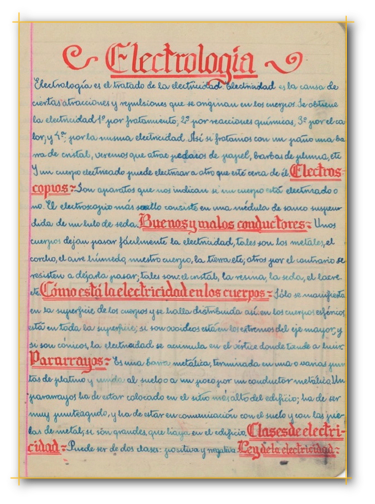 Electrología
Electrología es el tratado de la electricidad. Electricidad es la causa de
ciertas atracciones y repulsiones que se originan en los cuerpos. Se obtiene
la electricidad 1º por frotamiento, 2º por reacciones químicas, 3º por el ca-
lor, y 4º por la misma electricidad. Así si frotamos con un paño una ba
rra de cristal, veremos que atrae pedazos de papel, barbas de pluma, etc
Y un cuerpo electrizado puede electrizar a otro que esté cerca de él. Electros
copios = Son aparatos que nos indican si un cuerpo está electrizado o
no. El electroscopio más sencillo consiste en una médula de sauco suspen
dida de un hilo de seda. Buenos y malos conductores = Unos
cuerpos dejan pasar fácilmente la electricidad, tales son los metales, el
corcho, el aire húmedo, nuestro cuerpo, la tierra etc; otros por el contrario se
resisten a dejarla pasar, tales son el cristal, la resina, la seda, el lacre
etc Cómo está la electricidad en los cuerpos = Sólo se manifiesta
en la superficie de los cuerpos y se halla distribuida así en los cuerpos esféricos
está en toda la superficie; si son ovoideos está en los extremos del eje mayor, y
si son cónicos, la electricidad se acumula en el vértice donde tiende a huir
Pararrayos = Es una barra metálica, terminada en una o varias pun
tas de platino y unida al suelo o a un pozo por un conductor metálico Un
pararrayos ha de estar colocado en el sitio más alto del edificio; ha de ser
muy puntiagudo, y ha de estar en comunicación con el suelo y con las pie
zas de metal, si son grandes que haya en el edificio. Clases de electri
cidad = Puede ser de dos clases: positiva y negativa. Ley de la electricidad =